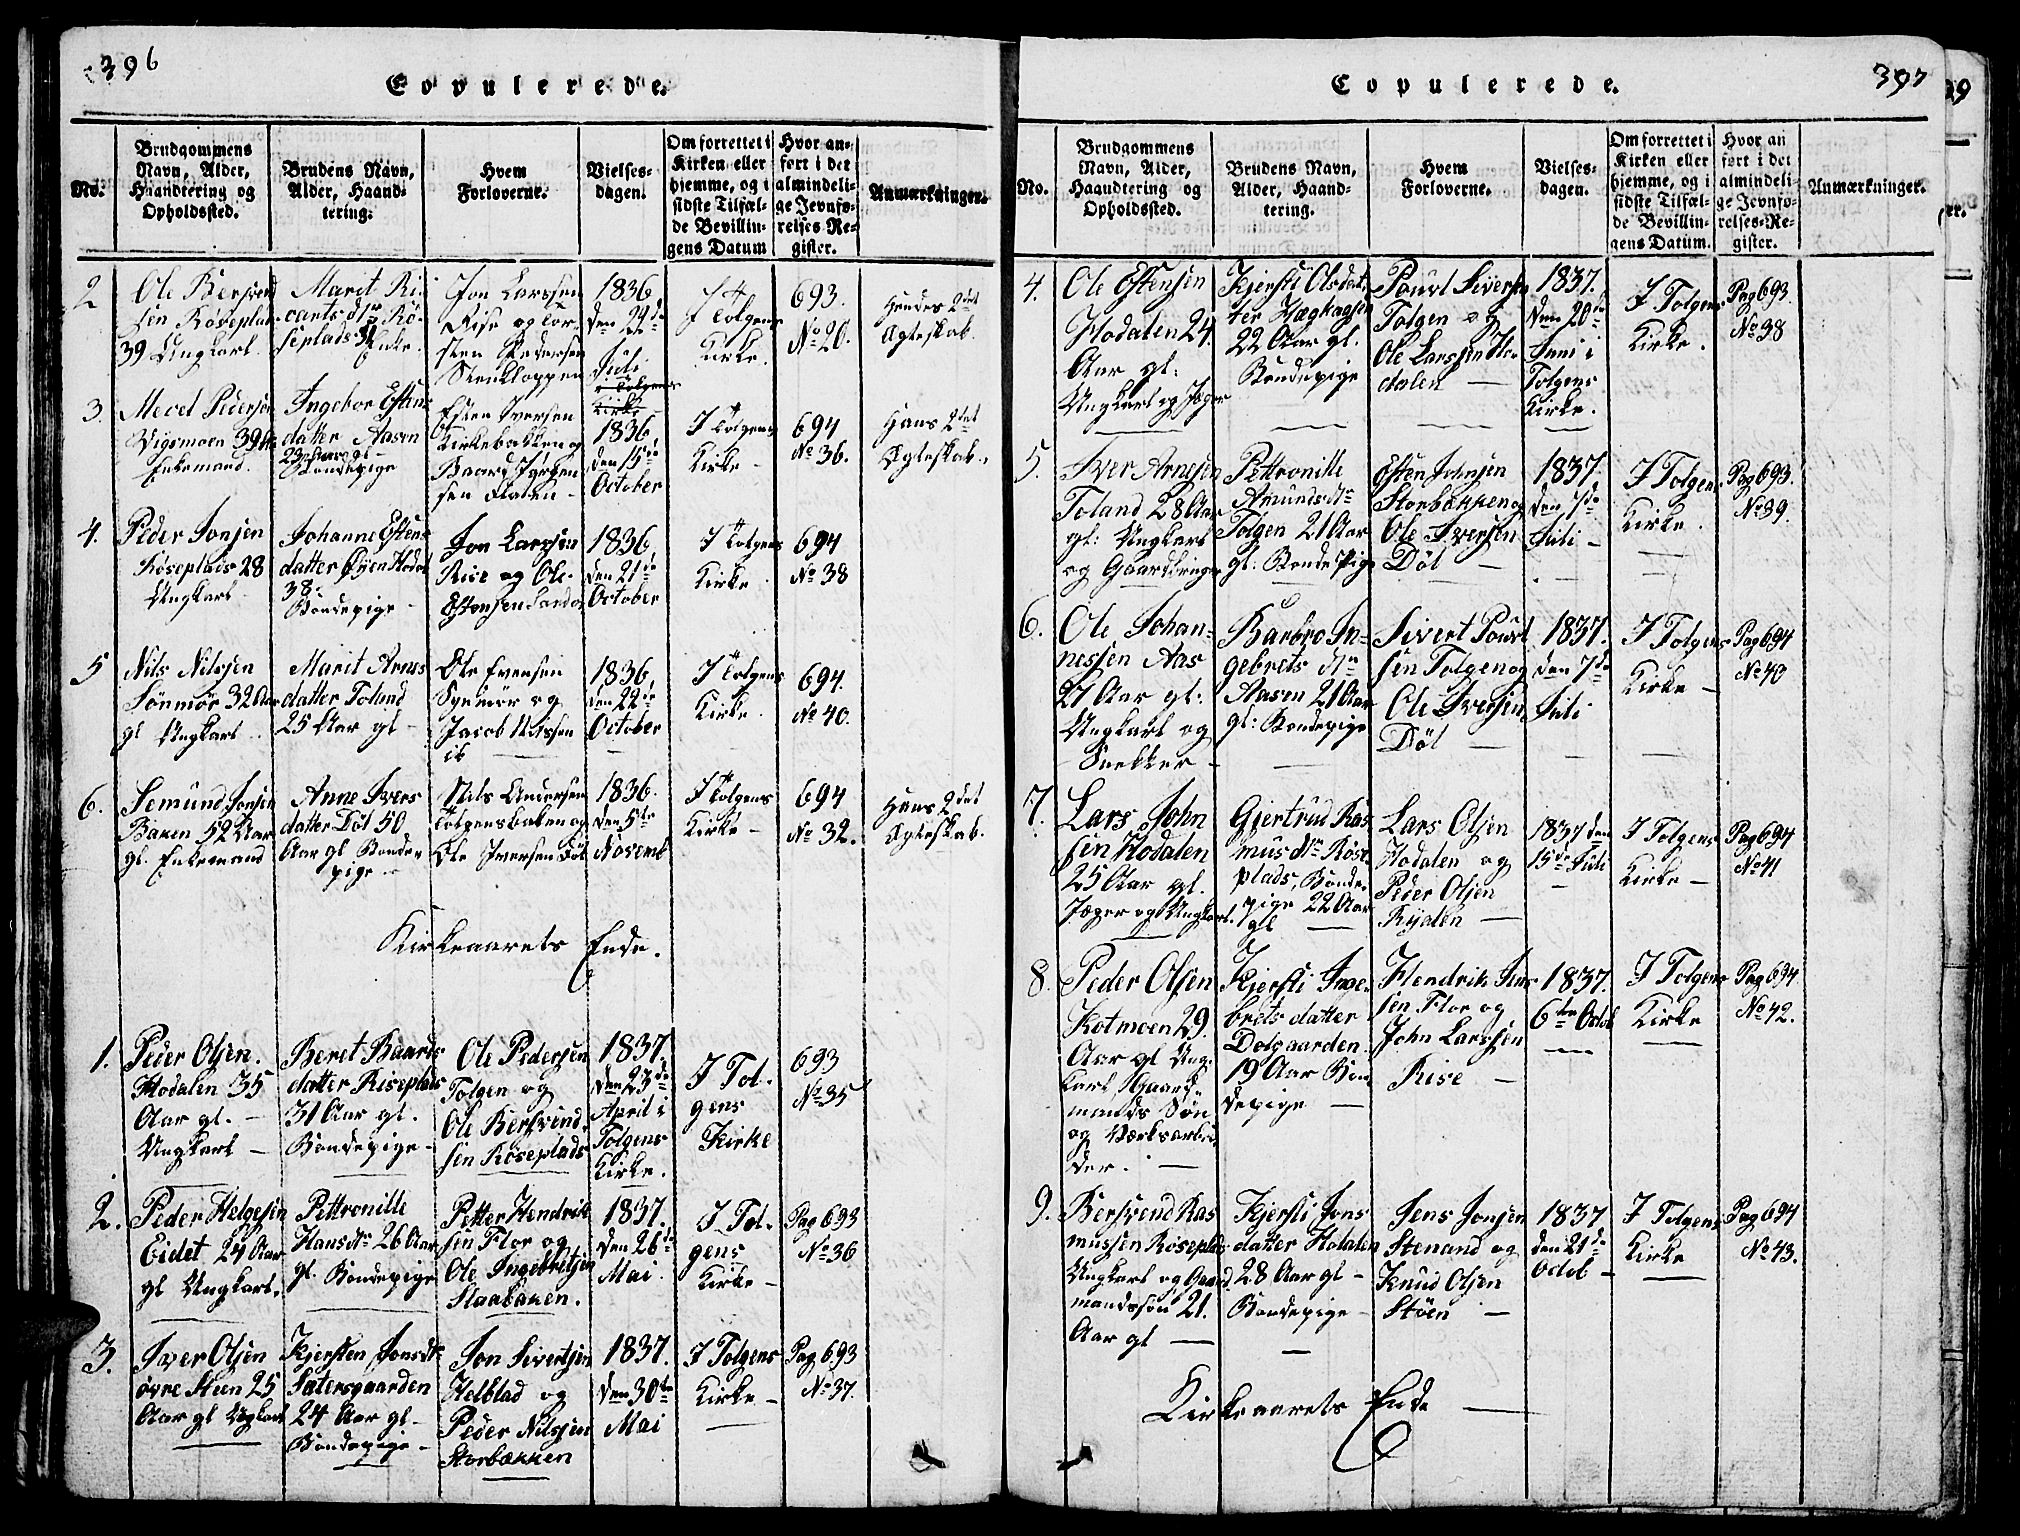 396
Copulerede.
No.
Brudgommens
Navn, Alder,
Haandtering og
Opholdssted.
Brudens Navn,
Alder, Haand-
tering.
Hvem
Forloverne.
Vielses-
dagen.
Om forrettet i
Kirken eller
hjemme, og i
sidste Tilfæl-
de Bevillin-
gens Datum
Hvor an-
ført i det
almindeli-
ge Jevnfø-
relses Re-
gister.
Anmærkninger.
2
Ole Bersvend
sen Røseplads
39 Ungkarl.
Marit Ri-
Rø-
seplads
Enke.
Jon Larssen
Rise og Tor-
sten Pedersen
Stenkloppen
1836
den 22de
Juli
i Tolgens
Kirke
I Tolgens
Kirke.
693.
No 20.
Hendes 2det
Ægteskab.
3.
Pedersen
Vigsmoen 39
Enkemand.
Ingebor Estens
datter Aasen
23 Aar gl
Bondepige
Esten Iversen
Kirkebakken og
Baard
sen
1836
den 15de
October
I Tolgens
Kirke
694
No 36.
Hans 2det
Ægteskab.
4.
Peder Jonsen
Røseplads 28
Ungkarl
Johanne Estens
datter Øien
38
Bondepige
Jon Larssen
Rise og Ole
Estensen
1836
den 21de
October
I Tolgens
Kirke
694
No 38
5
Nils Nilsen
32 Aar
gl Ungkarl
Marit Arnes
datter Toland
25 Aar gl
Ole Iversen
og
Jacob Nilssen
ib
1836
den 22de
October
I Tolgens
Kirke.
694.
No 40.
6.
Semund Jonsen
Baken 52 Aar
gl. Enkemand
Anne Ivers
datter Døl 50
Aar gl Bonde-
pige
Nils Andersen
Tolgensbaken og
Ole Iversen Døl
1836.
den 5te
Novemb
I Tolgens
Kirke
694
No 32.
Hans 2det
Ægteskab.
Kirkeaarets Ende.
1.
Peder Olsen.
Hodalen 35
Aar gl.
Ungkarl
Beret Baards
datter Røseplads
31 Aar gl.
Bondepige
Ole Pedersen
Tolgen og
Ole Bersvend-
sen Røseplads
1837.
den 23de
April i
Tolgens
Kirke.
I Tol-
gens
Kirke
693
No 35
2.
Peder Helgesen
Eidet 24 Aar
gl Ungkarl.
Pettronille
Hansdtr 26 Aar
gl. Bondepige
Petter Hendrik
sen Flor og
Ole Ingebretsen
Staabaken.
1837.
den 26de
Mai.
I Tol-
gens
Kirke
Pag 693
No 36
3.
Iver Olsen
øvre Steen 25
Aar gl Ungkarl
Kjersten Jonsdtr
Sætersgaarden
24 Aar gl.
Bondepige
Jon Sivertsen
Helblad og
Peder Nilsen
Storbækken
1837.
den 30te
Mai
I Tolgens
Kirke
Pag 693
No 37.
Copulerede.
397
No.
Brudgommens
Navn, Alder,
Haandtering og
Opholdssted.
Brudens Navn,
Alder, Haand-
tering.
Hvem
Forloverne.
Vielses-
dagen.
Om forrettet i
Kirken eller
hjemme, og i
sidste Tilfæl-
de Bevillin-
gens Datum.
Hvor an
ført i det
almindeli-
ge Jevnfø-
relses-Re-
gister.
Anmærkninger.
4.
Ole Estensen
Hodalen 24
Aar gl:
Ungkarl og Jæger
Kjersti Olsdat-
ter
22 Aar gl.
Bondepige
Pouvl Siversen
Tolgen og
Ole Larssen Ho-
dalen
1837.
den 20de
Juni i
Tolgens
Kirke.
I Tolgens
Kirke.
Pag 693
No 38
5.
Iver Arnesen
Toland 28 Aar
gl: Ungkarl
og Gaarddreng
Pettronille
Amundsdtr
Tolgen 21 Aar
gl: Bondepige
Esten Johnsen
Storbækken og
Ole Iversen
Døl
1837.
den 7de
Juli
I Tolgens
Kirke.
Pag 693.
No 39.
6.
Ole Johan-
nessen Aas
27 Aar gl:
Ungkarl og
Snekker
Barbro In-
gebrets dtr
Aasen 21 Aar
gl: Bondepige
Sivert Pouvl
sen Tolgen og
Ole Iversen
Døl
1837.
den 7de
Juli
I Tolgens
Kirke
Pag 694
No 40
7.
Lars John
sen Hodalen
25 Aar gl.
Jæger og Ungkarl.
Gjertrud Ras
mus dtr Røse
plads, Bonde-
pige 22 Aar
gl
Lars Olsen
Hodalen og
Peder Olsen
Ryalen
1837 den
15de Juli
I Tolgens
Kirke
Pag 694
No 41
8.
Peder Olsen
Kotmoen 29.
Aar gl Ung-
karl Gaard-
mands Søn
og Værksarbei-
der.
Kjersti Inge-
brets datter
Dolgaarden
19 Aar Bon
depige
Hendrik Jens
sen Flor og
John Larssen
Rise
1837.
6te Octob
I Tolgens
Kirke
Pag 694
No 42.
9.
Bersvend Ras
mussen Røseplads
Ungkarl og Gaard
mandssøn 21.
Aar gl
Kjersti Jons
datter Hodalen
28 Aar gl
Bondepige
Jens Jonsen
Stenand og
Knud Olsen
Støen
1837
den 21de
Octob
I Tolgens
Kirke
Pag 694
No 43.
Kirkeaarets Ende